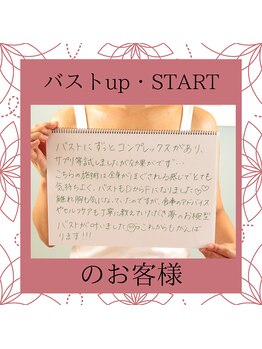 バストup・START
バストにずっとコンプレックスがあり、
サプリ等試しましたが効果がでず…
こちらの施術は全身がほぐされる感じでとても
気持ちよく、バストもDからFになりました♡♡
離れ胸も気になっていたのですが、食事のアドバイス
やセルフケアも丁寧に教えていただき夢のお椀型
バストが叶いました♡♡これからもがんば
ります!!!
のお客様